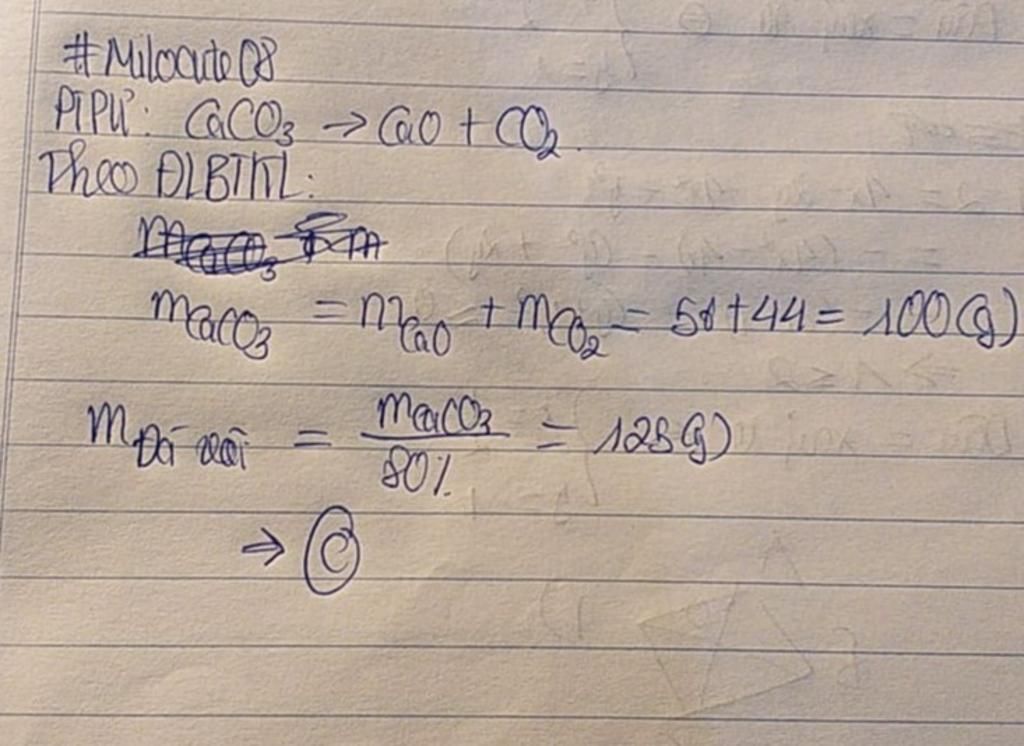 #Milocute08
PTPƯ: CaCO3 → CaO + CO2.
Theo ĐLBTKL:
mCaCO3 = mCaO + mCO2 = 56+44 = 100(g)
mĐá vôi = mCaCO3 / 80% = 125(g)
⇒ C